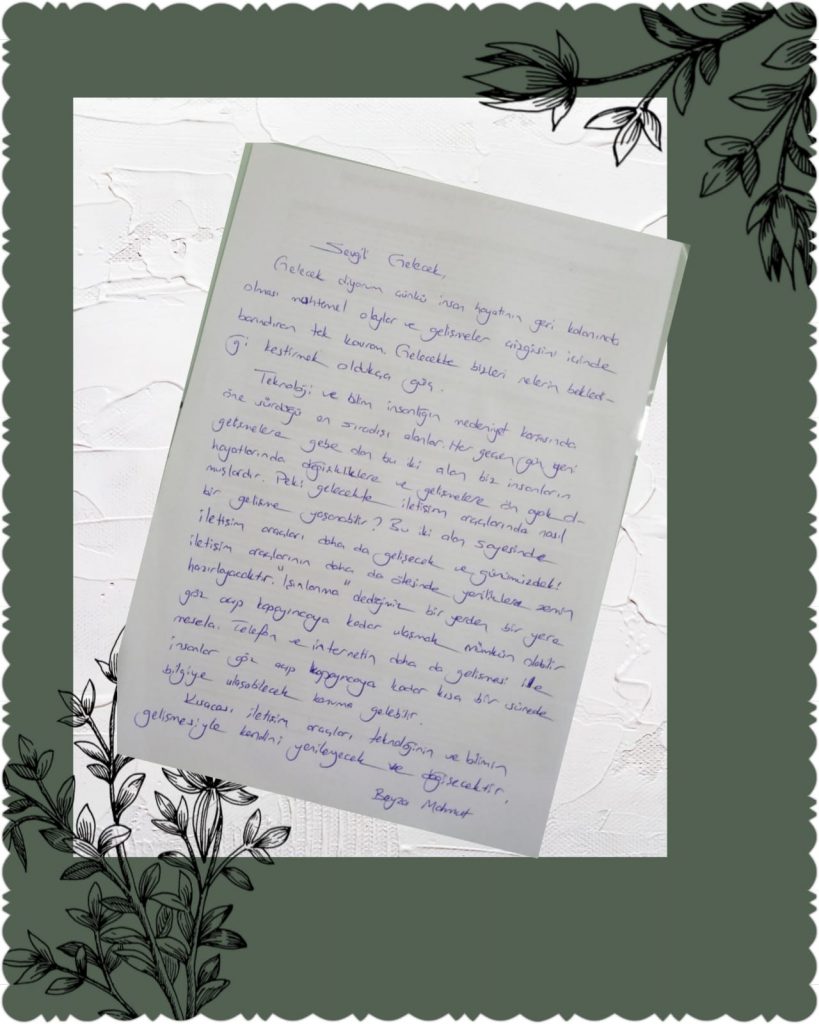 Sevgili Gelecek,
Gelecek diyorum çünkü insan hayatının geri kalanında
olması muhtemel olaylar ve gelişmeler çizgisini içinde
barındıran tek kavram. Gelecekte bizleri nelerin bekledi-
ği kestirmek oldukça güç.
Teknoloji ve bilim insanlığın medeniyet karşısında
öne sürdüğü en sıradışı alanlar. Her geçen gün yeni
gelişmelere gebe olan bu iki alan biz insanların
hayatlarında değişikliklere ve gelişmelere ön ayak ol-
muşlardır. Peki gelecekte iletişim araçlarında nasıl
bir gelişme yaşanabilir? Bu iki alan sayesinde
iletişim araçları daha da gelişecek ve günümüzdeki
iletişim araçlarının daha da ötesinde yeniliklere zemin
hazırlayacaktır. "Işınlanma" dediğimiz bir yerden bir yere
göz açıp kapayıncaya kadar ulaşmak mümkün olabilir
mesela. Telefon ve internetin daha da gelişmesi ile
insanlar göz açıp kapayıncaya kadar kısa bir sürede
bilgiye ulaşabilecek konuma gelebilir.
Kısacası iletişim araçları teknolojinin ve bilimin
gelişmesiyle kendini yenileyecek ve değişecektir.
Beyza Mahmut